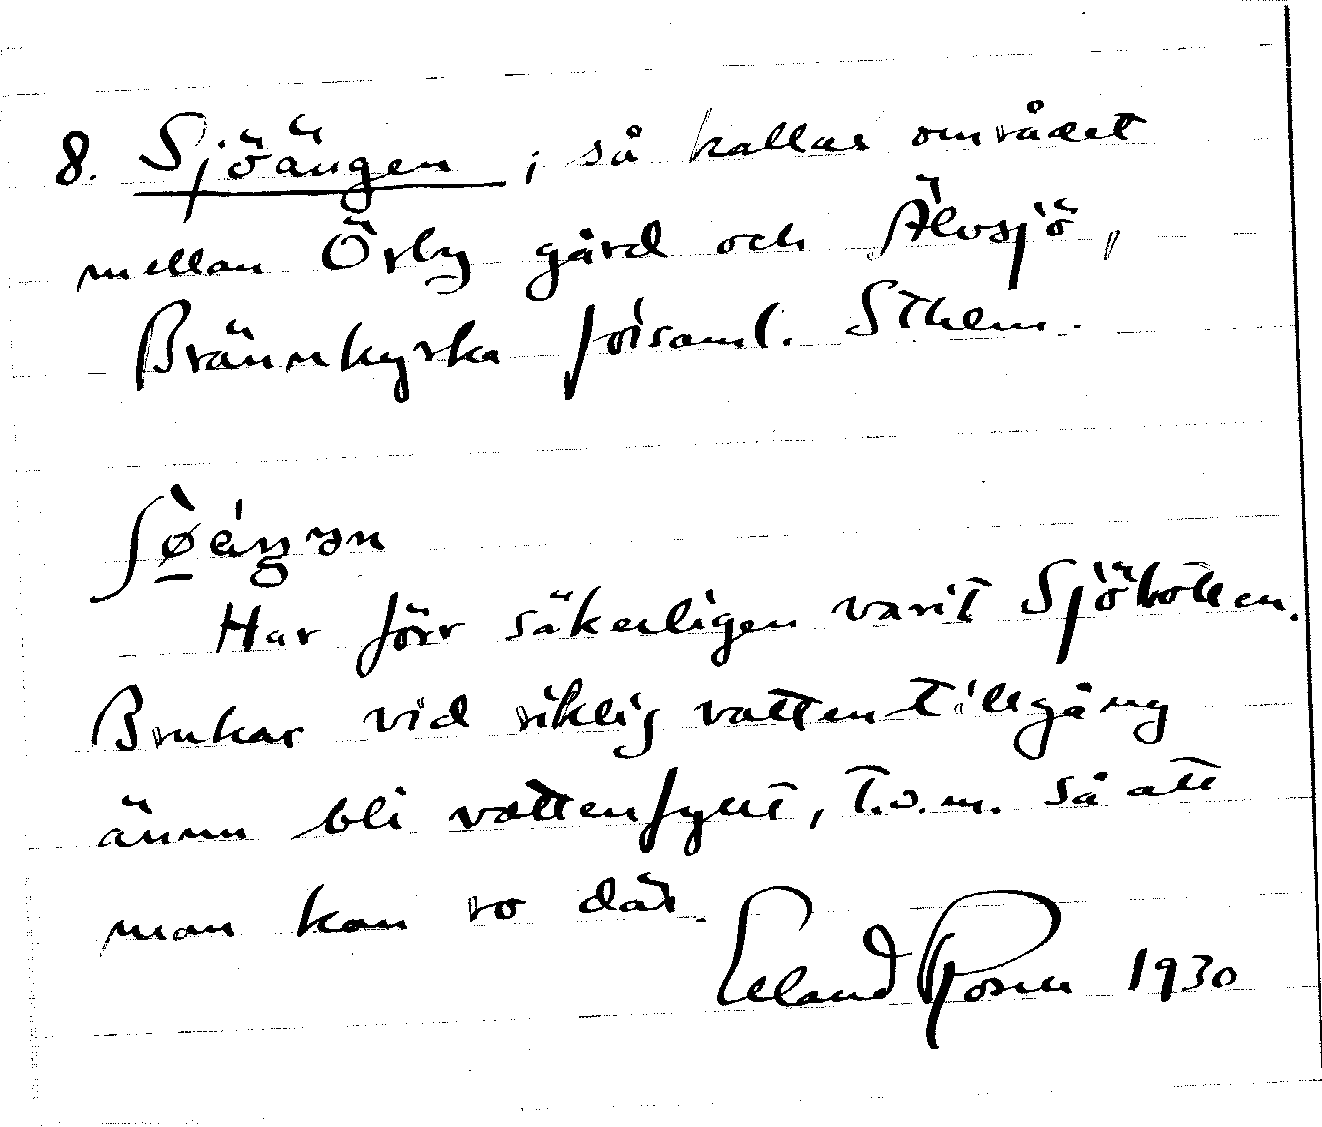 8. Sjöängen ; så kallas området
mellan Örby gård och Älvsjö,
Brännkyrka församl. Sthlm.
Har förr säkerligen varit Sjöbotten.
Brukar vid riklig vattentillgång
ännu bli vattenfyllt, t.o.m. så att
man kan ro där.
Erland Rosen 1930